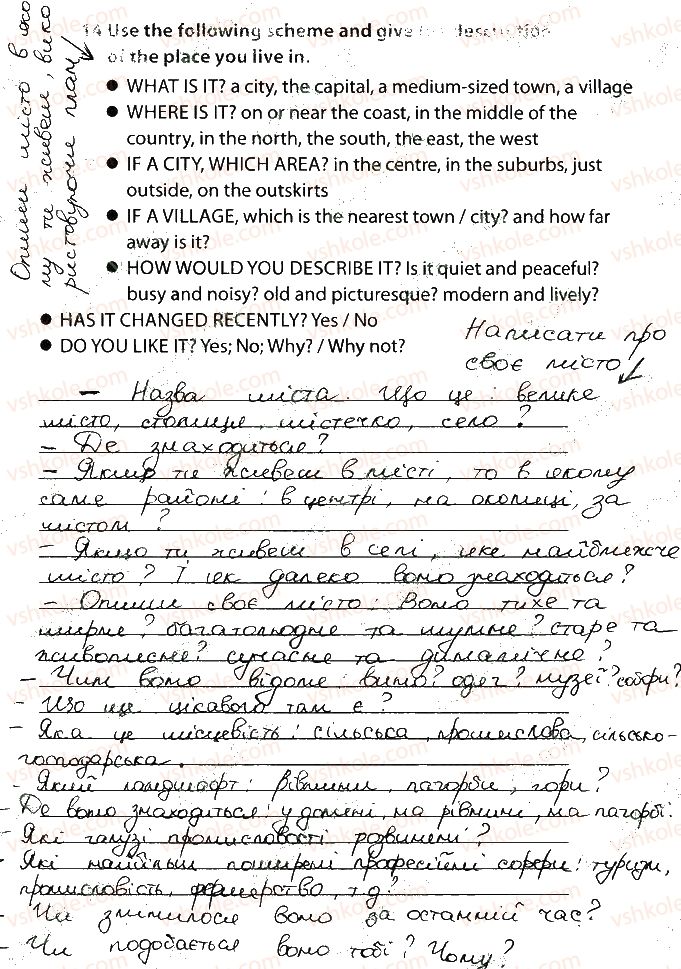 14 Use the following scheme and give
of the place you live in.
● WHAT IS IT? a city, the capital, a medium-sized town, a village
● WHERE IS IT? on or near the coast, in the middle of the
country, in the north, the south, the east, the west
● IF A CITY, WHICH AREA? in the centre, in the suburbs, just
outside, on the outskirts
● IF A VILLAGE, which is the nearest town / city? and how far
away is it?
● HOW WOULD YOU DESCRIBE IT? Is it quiet and peaceful?
busy and noisy? old and picturesque? modern and lively?
● HAS IT CHANGED RECENTLY? Yes / No
● DO YOU LIKE IT? Yes; No; Why? / Why not?
Опиши місто в яко
му ти живеш, вико
ристовуючи план
Написати про
своє місто
– Назва міста. Що це: велике
місто, столиця, містечко, село?
– Де знаходиться?
– Якщо ти живеш в місті, то в якому
саме районі: в центрі, на околиці, за
містом?
– Якщо ти живеш в селі, яке найближче
місто? І як далеко воно знаходиться?
– Опиши своє місто: Воно тихе та
мирне? багатолюдне та шумне? старе та
живописне? сучасне та динамічне?
– Чим воно відоме: вино? одяг? музеї? собори?
– Що ще цікавого там є?
– Яка це місцевість: сільська, промислова, сільсько-
господарська.
– Який ландшафт: рівнини, пагорби, гори?
– Де воно знаходиться: у долині, на рівнині, на пагорбі.
Які галузі промисловості розвинені?
Які найбільш поширені професійні сфери: туризм,
промисловість, фермерство, т.д?
– Чи змінилося воно за останній час?
– Чи подобається воно тобі? Чому?